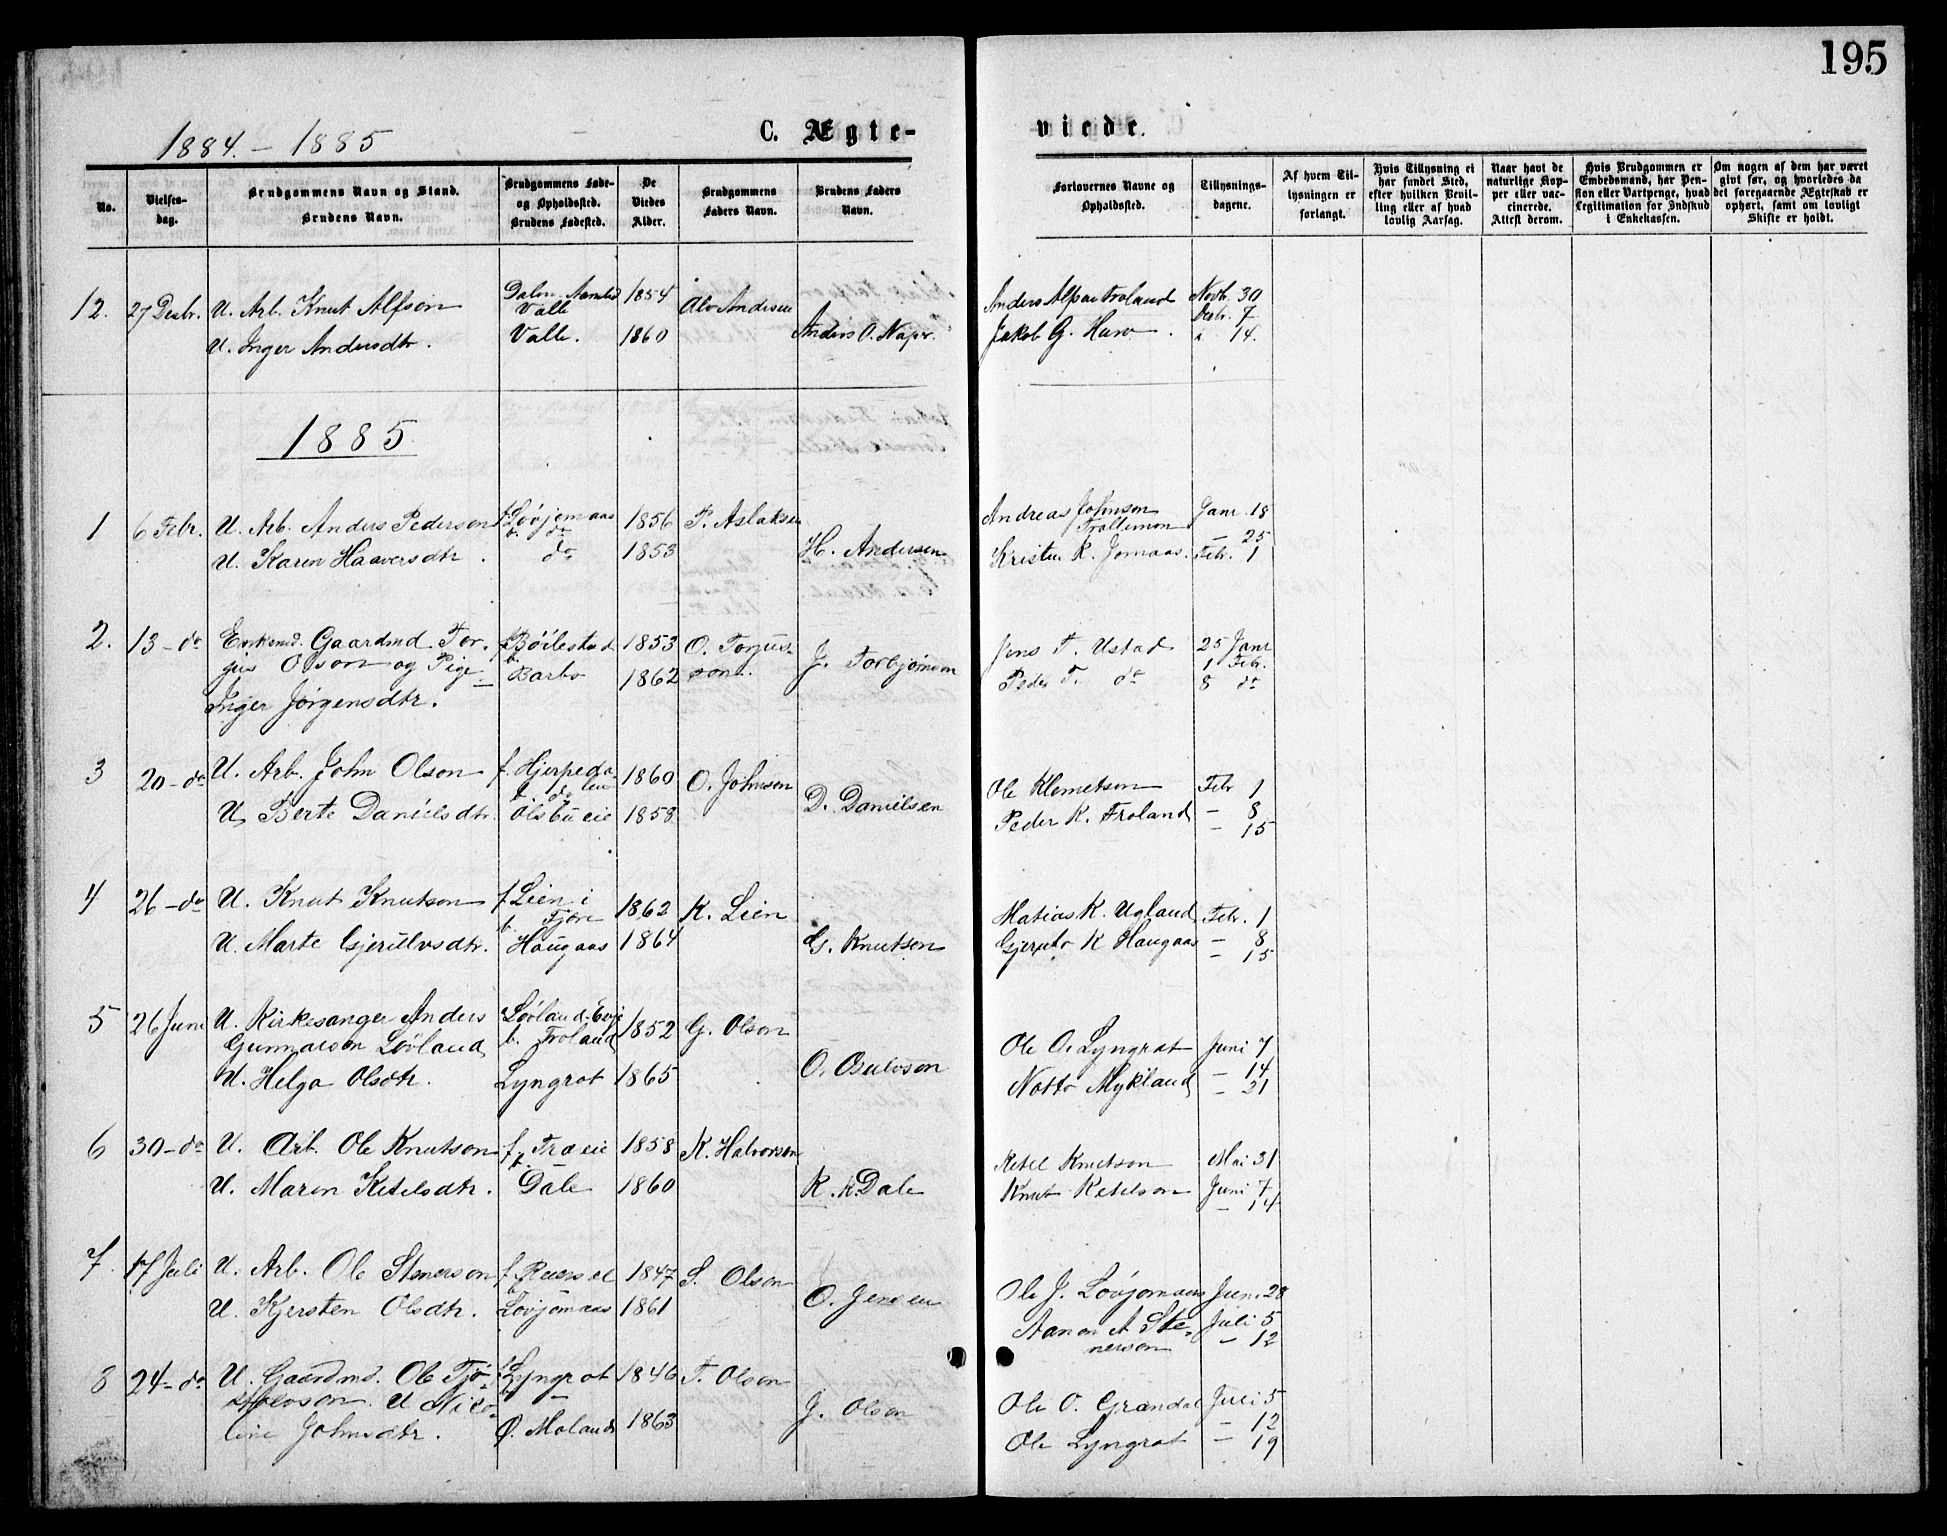 195
1884. - 1885
C. Ægte-
viede.
No.
Vielses-
dag.
Brudgommens Navn og Stand.
Brudens Navn.
Brudgommens Føde-
og Opholdssted.
Brudens Fødested.
De
Viedes
Alder.
Brudgommens
Faders Navn.
Brudens Faders
Navn.
Forlovernes Navne og
Opholdssted.
Tillysnings-
dagene.
Af hvem Til-
lysningen er
forlangt.
Hvis Tillysning ei
har fundet Sted,
efter hvilken Bevil-
ling eller af hvad
lovlig Aarsag.
Naar havt de
naturlige Kop-
per eller vac-
cinerede.
Attest derom.
Hvis Brudgommen er
Embedsmand, har Pen-
sion eller Vartpenge, hvad
Legitimation for Indskud
i Enkekassen.
Om nogen af dem har været
givt før, og hvorledes da
det foregaaende Ægteskab er
ophørt, samt om lovligt
Skifte er holdt.
12. 27 Desbr. U. Arb. Knut Alfson Dalen 1854 Alv Andersen Anders Alfsen Froland Novb. 30
Valle Desbr. 7
U. Inger Andersdtr. Valle. 1860 Anders O. Jakob G. Hurv. 14.
1885
1 6 Febr. U. Arb. Anders Pederson f. Løvjomaas 1856 P. Aslaksen Andreas Johnson Janr. 18
b. do Trollemon - 25
U. Karen Haaversdtr. do 1853 H. Andersen Kristen K. Jomaas. Febr. 1
2. 13 - do Enkemd. Gaardmd. Tor- f. Bøilestad 1853 O. Torjus- Jens T. Ustad 25 Janr
jus Olson og Pige b. son. J. Torbjørnsen 1 Febr.
Inger Jørgensdtr. Barbo 1862 Peder T. do 8 do
3 20 - do U. Arb. John Olson f. Hjerpeda- 1860 O. Johnson Ole Klemetson Febr 1
b. do len - 8
U. Berte Danielsdtr. Olsbu eie 1858 D. Danielsen Peder K. Froland - 15
4 26 - do U. Knut Knutson f. Lien i 1862 K. Lien Matias K. Ugland Febr. 1
b. Fjøre - 8
U. Marte Gjerulvsdtr. Haugaas 1864 G. Knutson K Haugaas - 15
5 26 Juni U. Kirkesanger Anders f. Løvland. Evje 1852 G. Olson Ole O. Lyngrot Juni 7
Gunnarson Løvland b. Froland - 14
U. Helga Olsdtr. Lyngrot 1865 O. Notto Mykland - 21
6 30 - do U. Arb. Ole Knutson f. Træ eie 1858 K. Halvorsen Ketel Knutson Mai 31
b. Juni 7
U. Maren Ketelsdtr. Dale 1860 K. K. Dale Knut Ketelson - 14
7. 17 Juli U. Arb. Ole Stenerson f. 1847 S. Olson Ole J. Løvjomaas Juni 28
b. Aanon A Ste- Juli 5
U. Kjersten Olsdtr. Løvjomaas 1861 O. Jensen nerson - 12
8 24 - do U. Gaardmd. Ole Tjø- f. Lyngrot 1846 T. Olson Ole O. Grændal Juli 5
stolvson. U Nico- b. - - 12
line Johnsdtr. Ø. Moland 1863 J. Olson Ole Lyngrot - 19